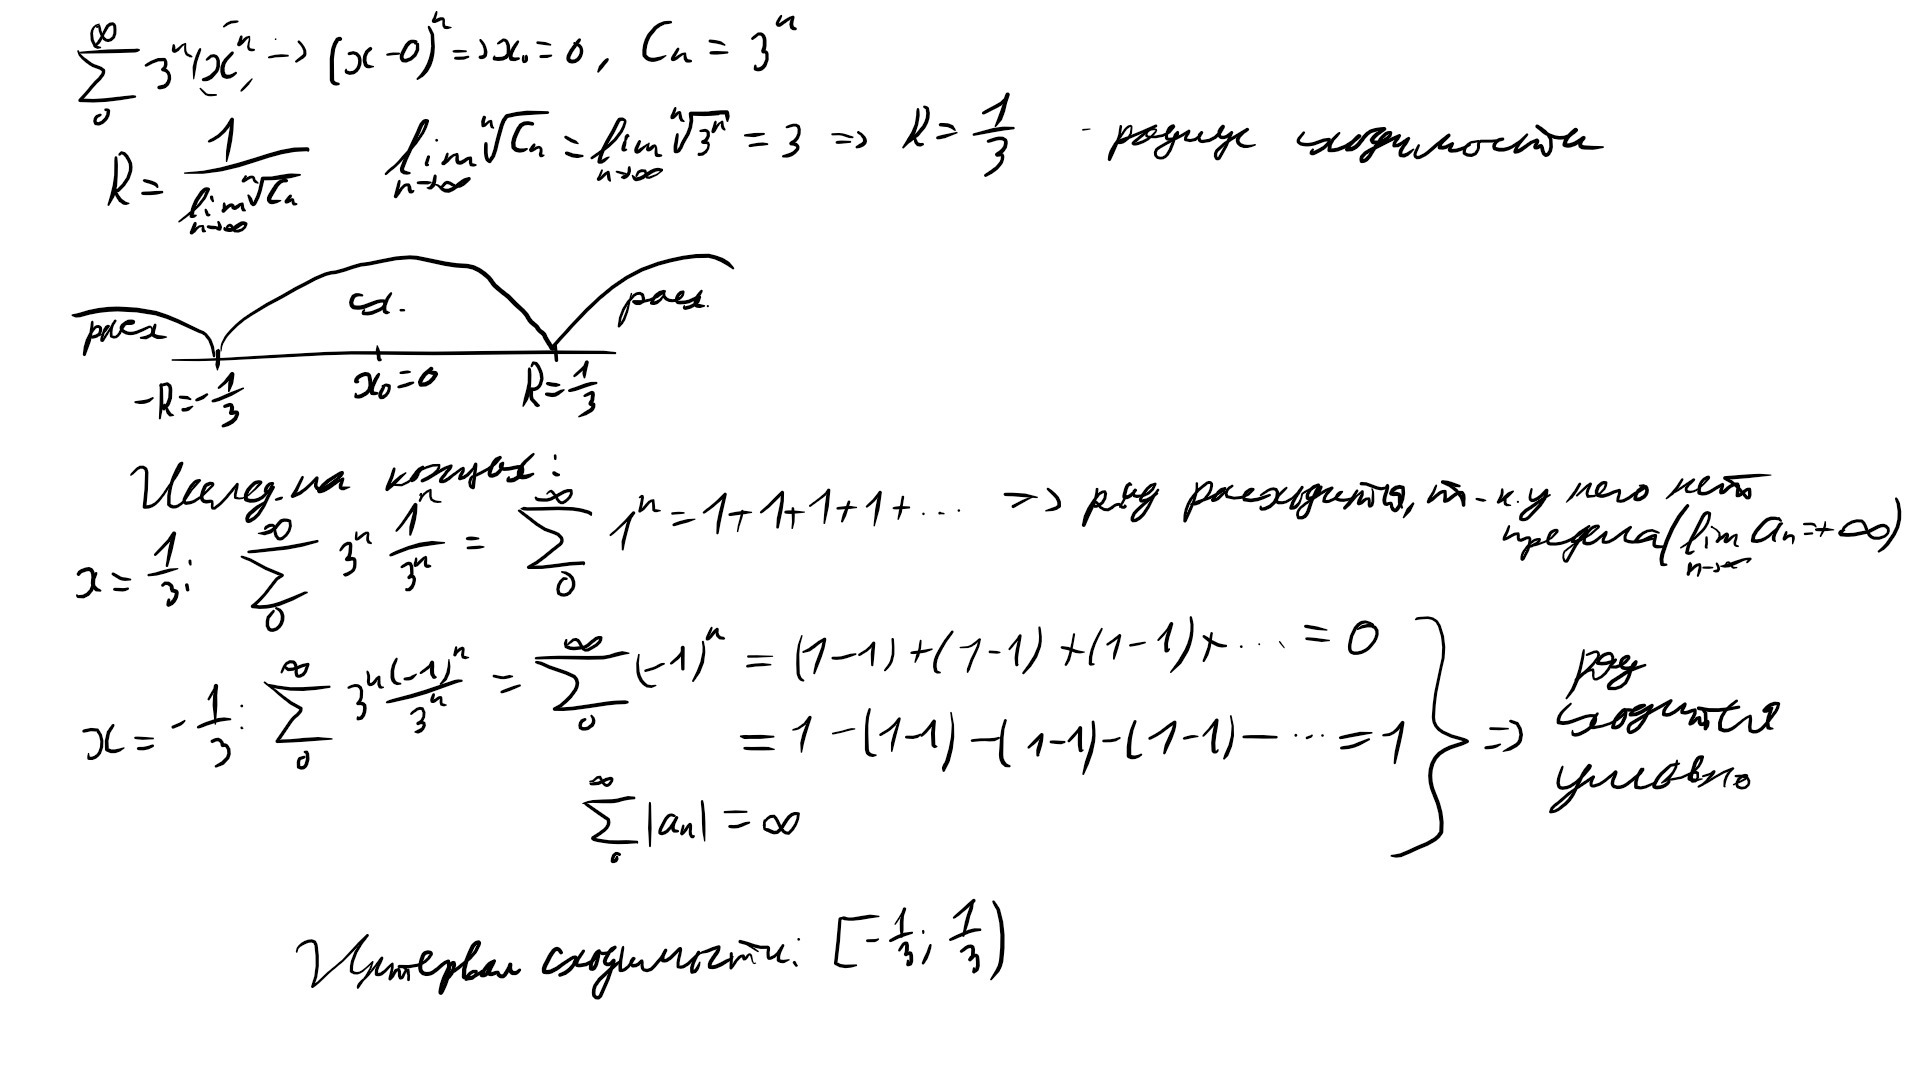 ∑_0^∞ 3ⁿ(xⁿ) → (x-0)ⁿ => x₀ = 0, Cₙ = 3ⁿ
R = 1/(lim_{n→∞} ⁿ√Cₙ) lim_{n→∞} ⁿ√Cₙ = lim_{n→∞} ⁿ√3ⁿ = 3 => R = 1/3 - радиус сходимости
расх сх. расх.
-R = -1/3 x₀ = 0 R = 1/3
Исслед. на концах:
x = 1/3: ∑_0^∞ 3ⁿ 1ⁿ/3ⁿ = ∑_0^∞ 1ⁿ = 1+1+1+1+... => ряд расходится, т-к. у него нет
предела (lim_{n→∞} aₙ = +∞)
x = -1/3: ∑_0^∞ 3ⁿ (-1)ⁿ/3ⁿ = ∑_0^∞ (-1)ⁿ = (1-1)+(1-1)+(1-1)+... = 0
= 1-(1-1)-(1-1)-(1-1)-... = 1
∑_0^∞ |aₙ| = ∞
} => ряд
сходится
условно
Интервал сходимости: [-1/3; 1/3)